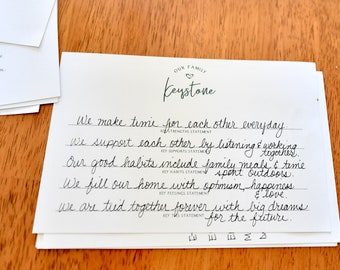 OUR FAMILY
Keystone
We make time for each other everyday
KEY STRENGTHS STATEMENT
We support each other by listening & working
together.
KEY SUPPORTS STATEMENT
Our good habits include family meals & time
spent outdoors
KEY HABITS STATEMENT
We fill our home with optimism, happiness
& love
KEY FEELINGS STATEMENT
We are tied together forever with big dreams
for the future.
KEY TIES STATEMENT